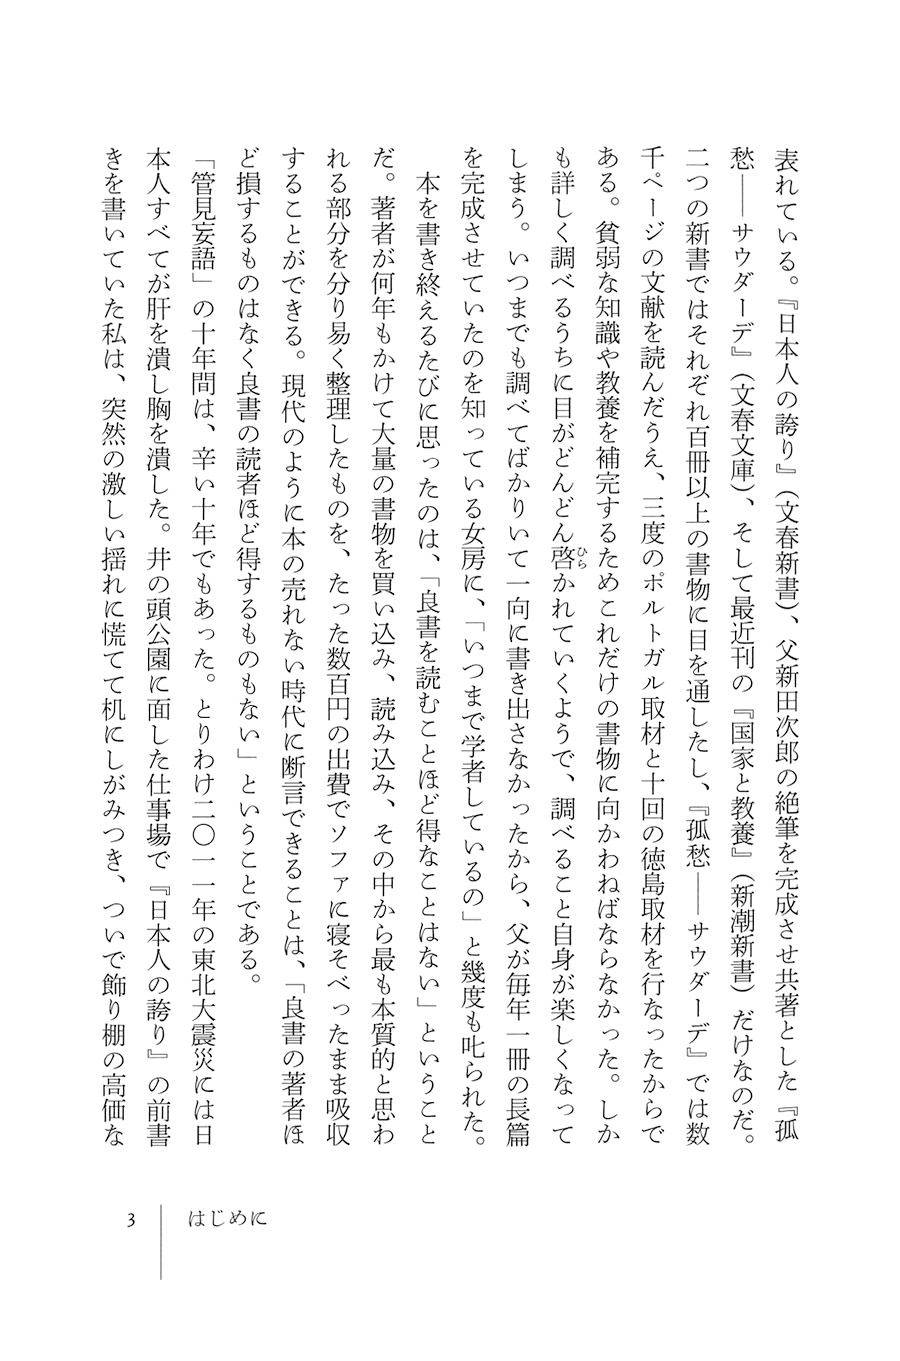 表れている。『日本人の誇り』（文春新書）、父新田次郎の絶筆を完成させ共著とした『孤
愁――サウダーデ』（文春文庫）、そして最近刊の『国家と教養』（新潮新書）だけなのだ。
二つの新書ではそれぞれ百冊以上の書物に目を通したし、『孤愁――サウダーデ』では数
千ページの文献を読んだうえ、三度のポルトガル取材と十回の徳島取材を行なったからで
ある。貧弱な知識や教養を補完するためこれだけの書物に向かわねばならなかった。しか
も詳しく調べるうちに目がどんどん啓かれていくようで、調べること自身が楽しくなって
ひら
しまう。いつまでも調べてばかりいて一向に書き出さなかったから、父が毎年一冊の長篇
を完成させていたのを知っている女房に、「いつまで学者しているの」と幾度も叱られた。
本を書き終えるたびに思ったのは、「良書を読むことほど得なことはない」ということ
だ。著者が何年もかけて大量の書物を買い込み、読み込み、その中から最も本質的と思わ
れる部分を分り易く整理したものを、たった数百円の出費でソファに寝そべったまま吸収
することができる。現代のように本の売れない時代に断言できることは、「良書の著者ほ
ど損するものはなく良書の読者ほど得するものもない」ということである。
「管見妄語」の十年間は、辛い十年でもあった。とりわけ二〇一一年の東北大震災には日
本人すべてが肝を潰し胸を潰した。井の頭公園に面した仕事場で『日本人の誇り』の前書
きを書いていた私は、突然の激しい揺れに慌てて机にしがみつき、ついで飾り棚の高価な
3 はじめに